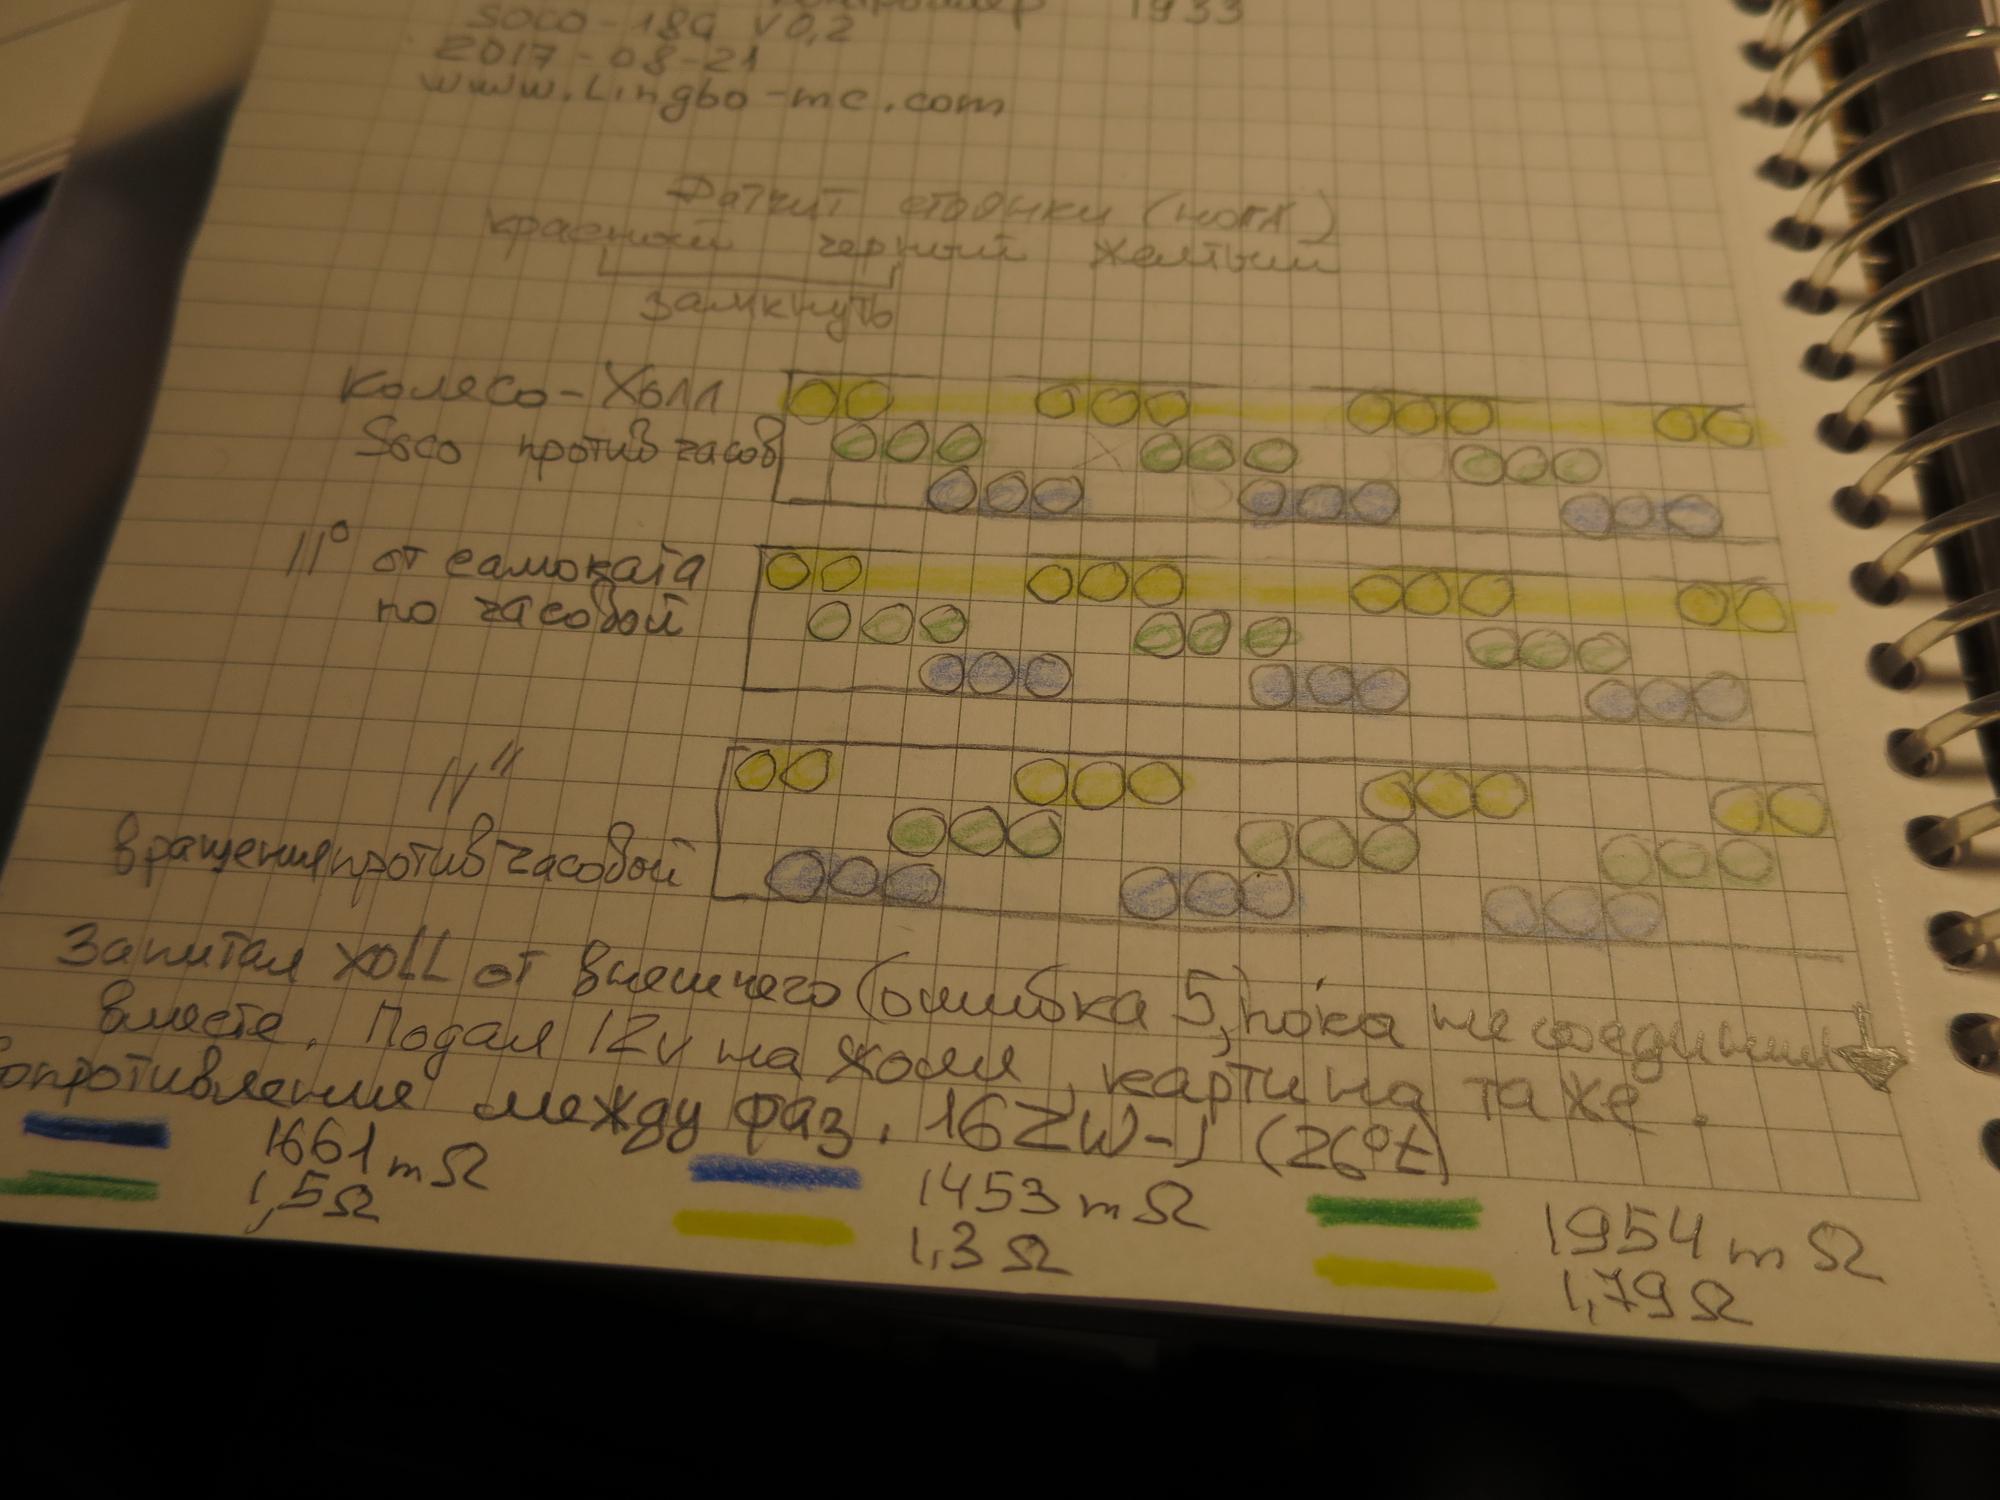 1933
SOCO-18G V0,2
2017-08-21
www.Lingbo-mc.com
Датчит стоянки (нога)
красный черный желтый
замкнуть
Колесо-Холл
Soco против часов
11° от самоката
по часовой
11"
вращения против часовой
Запитал ХоLL от внешнего (ошибка 5, пока не соединим
вместе. Подал 12v на холл, картина та же.
опротивление между фаз. 16ZW-J (26°t)
1661 mΩ 1453 mΩ 1954 mΩ
1,5Ω 1,3Ω 1,79Ω